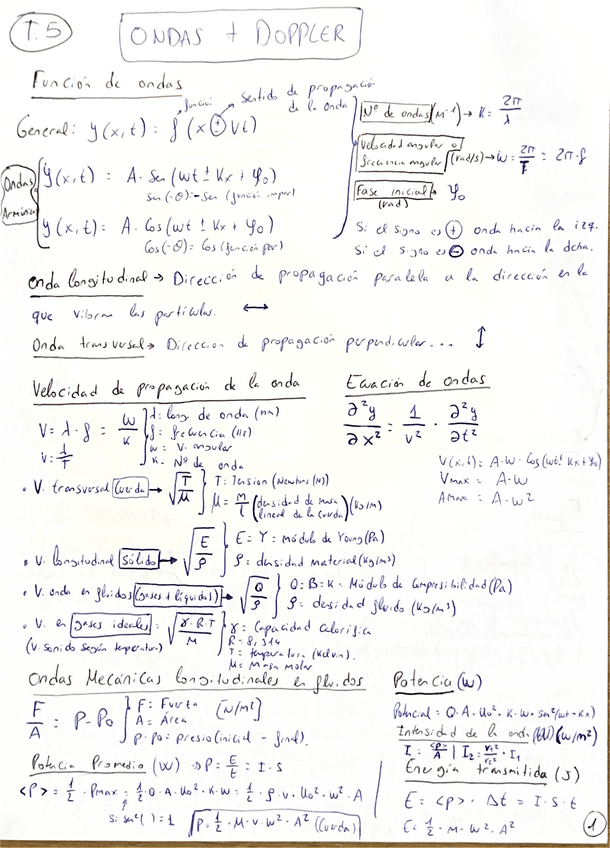 T.5
ONDAS + DOPPLER
Función de ondas
función
Sentido de propagación de la onda
General: y(x,t) = f(x ± vt)
Ondas Armónicas
y(x,t) = A · Sen(wt ± Kx + φ₀)
sen(-θ) = -Sen (función impar)
y(x,t) = A · Cos(wt ± Kx + φ₀)
Cos(-θ) = Cos (función par)
Nº de ondas (m⁻¹) → K = 2π/λ
Velocidad angular o frecuencia angular (rad/s) → w = 2π/T = 2π·f
Fase inicial → φ₀
(rad)
Si el signo es + onda hacia la izq.
Si el signo es - onda hacia la dcha.
Onda longitudinal → Dirección de propagación paralela a la dirección en la
que vibran las partículas. ↔
Onda transversal → Direccion de propagación perpendicular... ↕
Velocidad de propagación de la onda
V = λ · f = w/K
v = λ/T
λ: long. de onda (m)
f = frecuencia (Hz)
w = v. angular
K = Nº de onda
Ecuación de ondas
∂²y/∂x² = 1/v² · ∂²y/∂t²
V(x,t) = A·w·Cos(wt ± Kx + φ₀)
Vmax = A·w
Amax = A·w²
• V. transversal Cuerda → √(T/μ)
T: Tension (Newtons (N))
μ = m/l (densidad de masa lineal de la cuerda) (Kg/m)
• V. longitudinal Sólido → √(E/ρ)
E = Y = módulo de Young (Pa)
ρ = densidad material (Kg/m³)
• V. onda en fluidos (gases + líquidos) → √(Q/ρ)
Q = B = K = Módulo de Compresibilidad (Pa)
ρ = densidad fluido (Kg/m³)
• V. en gases ideales = √(γ·R·T/M)
(V. sonido según temperatura)
γ = Capacidad Calorífica
R = 8,314
T = temperatura (Kelvin).
M = Masa molar
Ondas Mecánicas Longitudinales en fluidos
F/A = P - P₀
F = Fuerza [N/m²]
A = Área
p - p₀ = presio (inicial - final).
Potencia Promedio (W) → P = E/t = I · S
<P> = 1/2 · Pmax = 1/2 · Q · A · U₀² · K · w = 1/2 · ρ · v · U₀² · w² · A
si sen²( ) = 1
P = 1/2 · μ · v · w² · A² (Cuerda)
Potencia (W)
Potencial = Q · A · U₀² · K · w · sen²(wt - Kx)
Intensidad de la onda (W/m²)
I = <P>/A | I₂ = r₁²/r₂² · I₁
Energía transmitida (J)
E = <P> · Δt = I · S · t
E = 1/2 · m · w² · A²
1